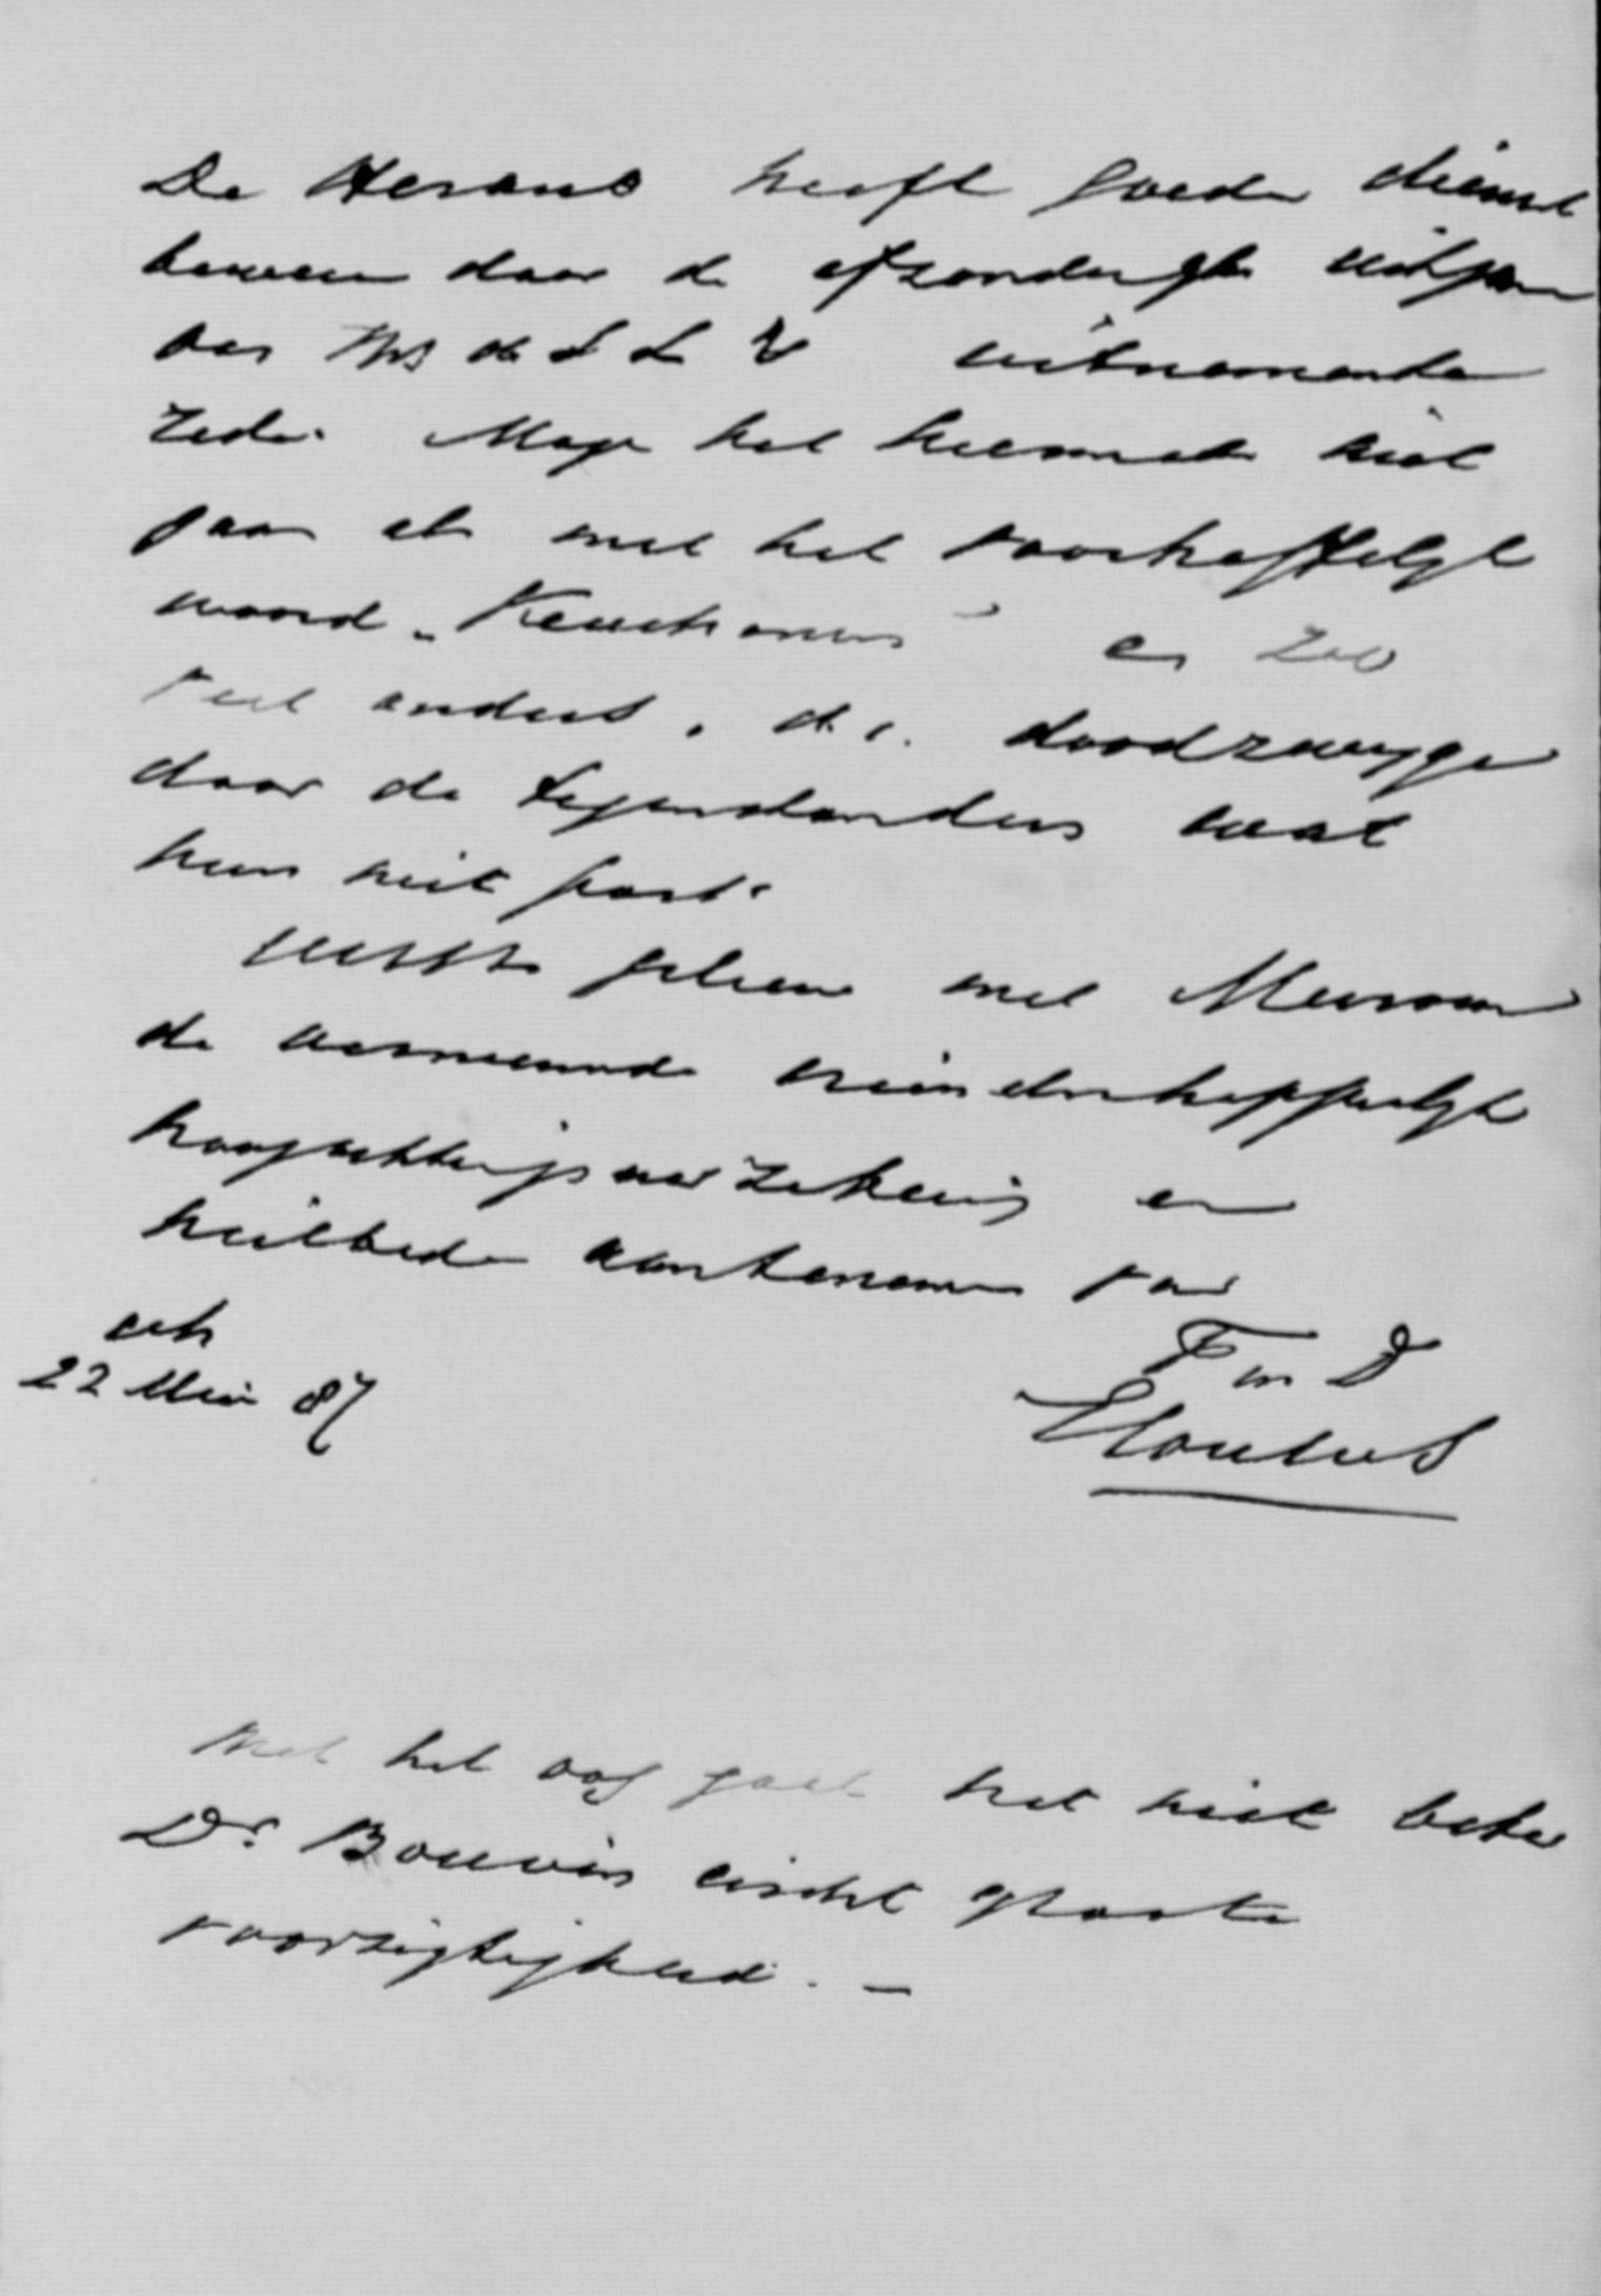 De Heraut heeft goede dienst
bewezen door de afzonderlijke uitgave
van Mr de S L V uitnemende
rede. Moge het hiermede niet
gaan als met het voortreffelijk
woord „Keuchenius" en zoo
veel anders, d.i. doodzwijgen
door de tegenstanders wat
hun niet past.
UHGStr gelieve met Mevrouw
de vernieuwde vriendschappelijke
hoogachtingsverzekering en
heilbede aantenemen van
22 Mei 87
T in D
Elout v S
Met het oog gaat het niet beter
Dr Bouvin eischt groote
voorzigtigheid. –